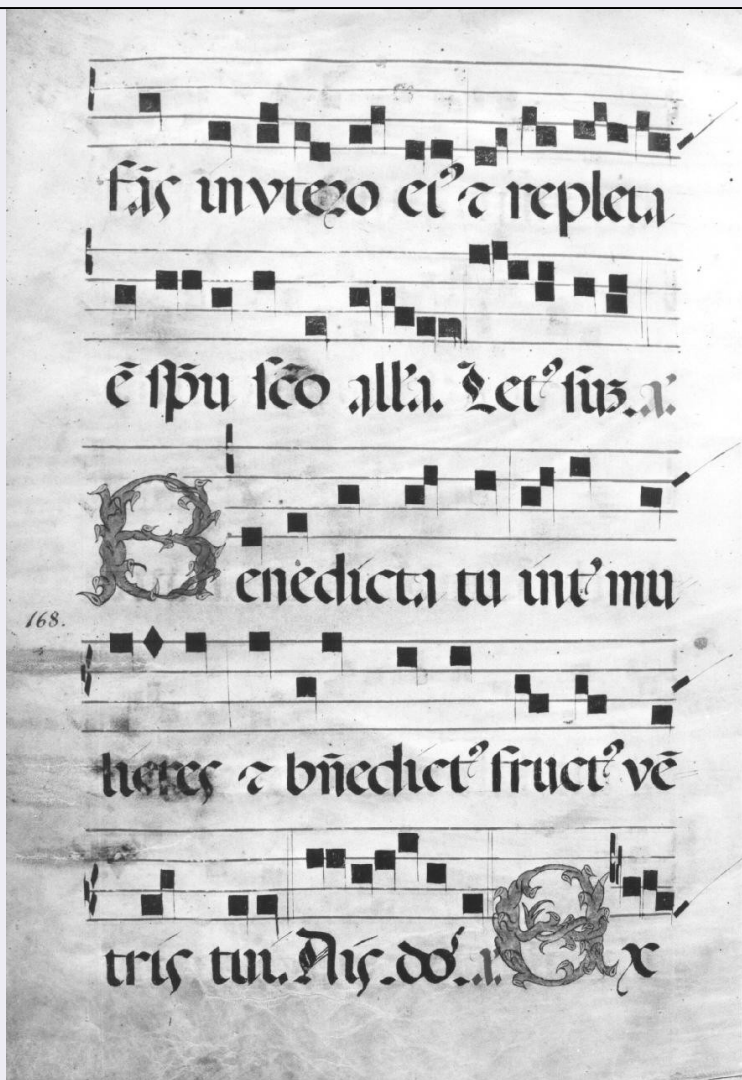 fãs in vtero ei⁹ ⁊ repleta
ē sp̄u sc̄o all'a. Let⁹ suz. a.
Benedicta tu int' mu
168.
lieres ⁊ bn̄edict⁹ fruct⁹ vē
tris tui. Ais. do'. a. Ex